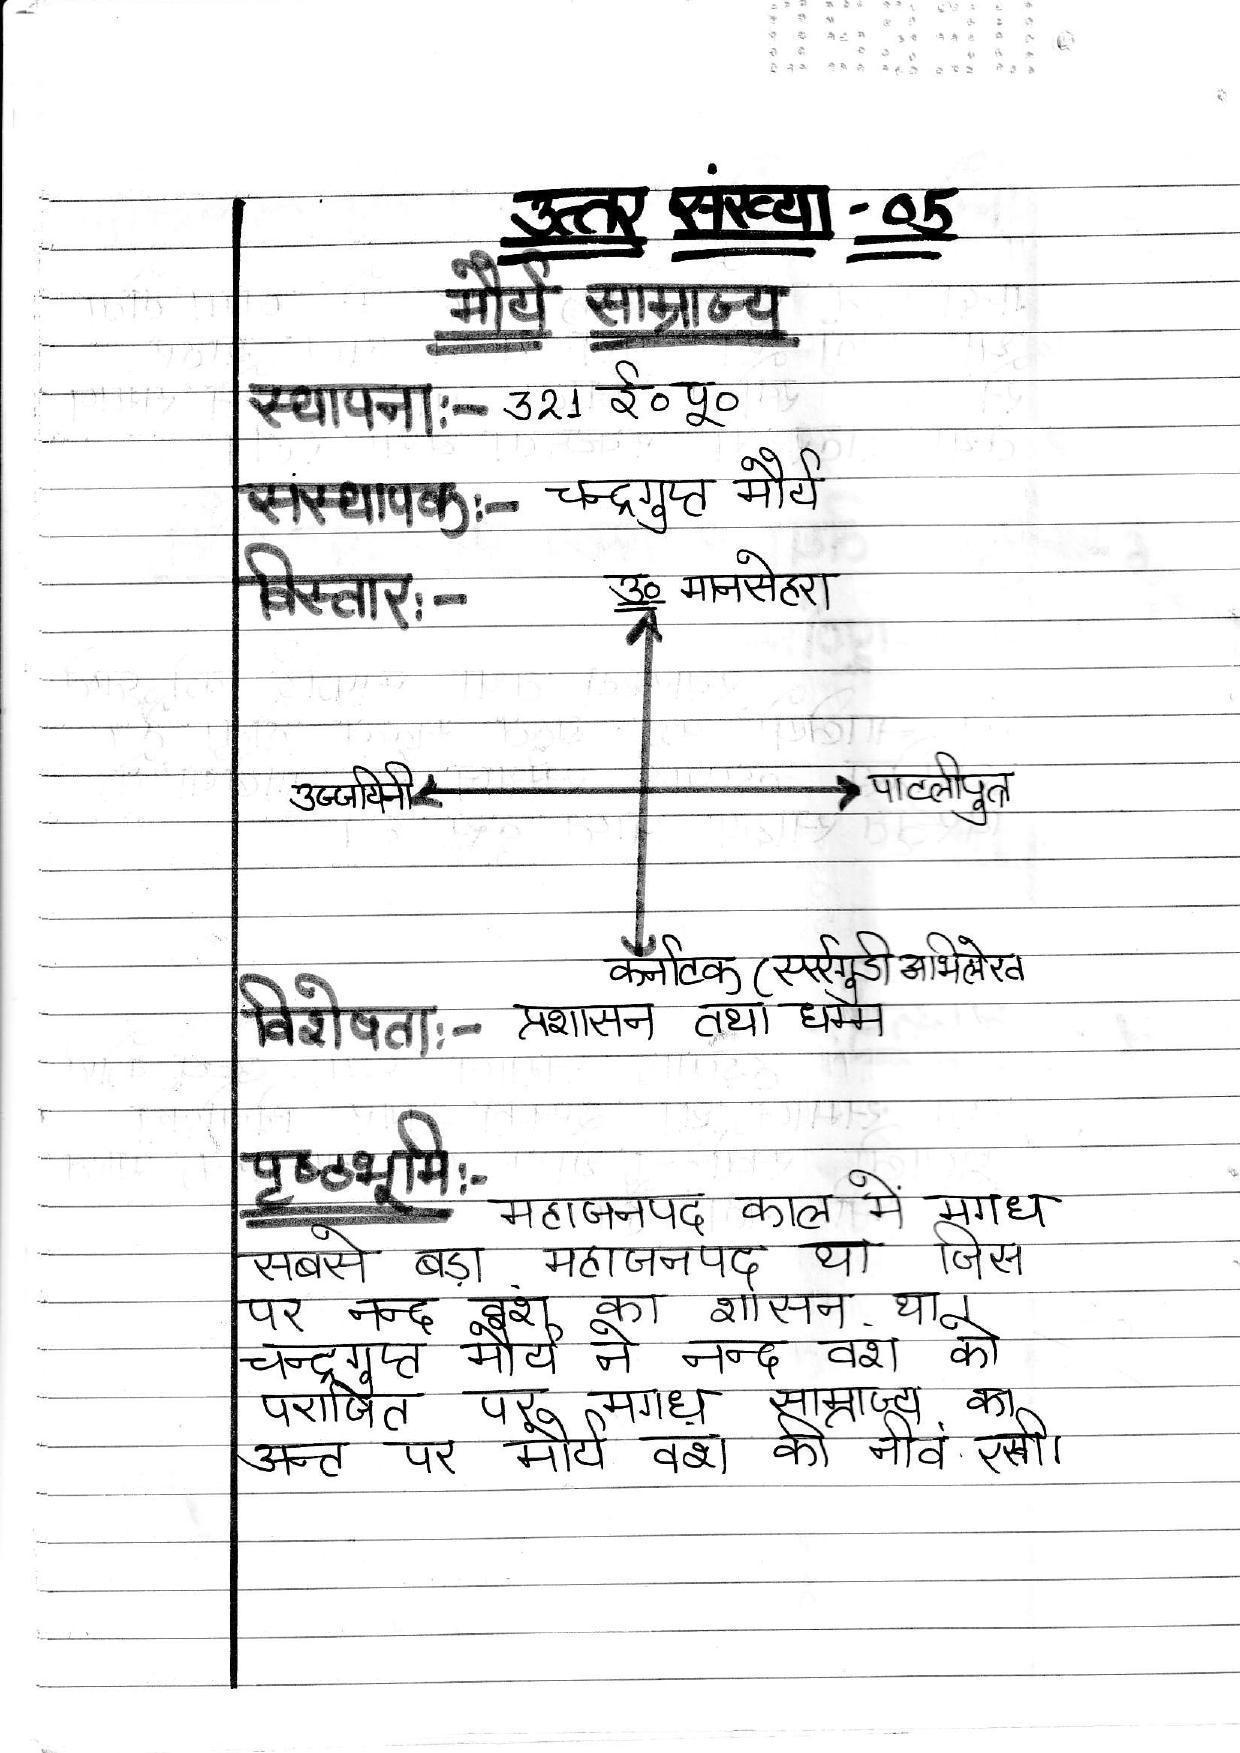 उत्तर संख्या - 05
मौर्य साम्राज्य
स्थापना:- 321 ई० पू०
संस्थापक:- चन्द्रगुप्त मौर्य
विस्तार:- उ० मानसेहरा
उज्जयिनी पाटलीपुत्र
कर्नाटक (एर्रागुडी अभिलेख
विशेषता:- प्रशासन तथा धम्म
पृष्ठभूमि:-
महाजनपद काल में मगध
सबसे बड़ा महाजनपद था जिस
पर नन्द वंश का शासन था।
चन्द्रगुप्त मौर्य ने नन्द वंश को
पराजित पर मगध साम्राज्य का
अन्त पर मौर्य वंश की नींव रखी।